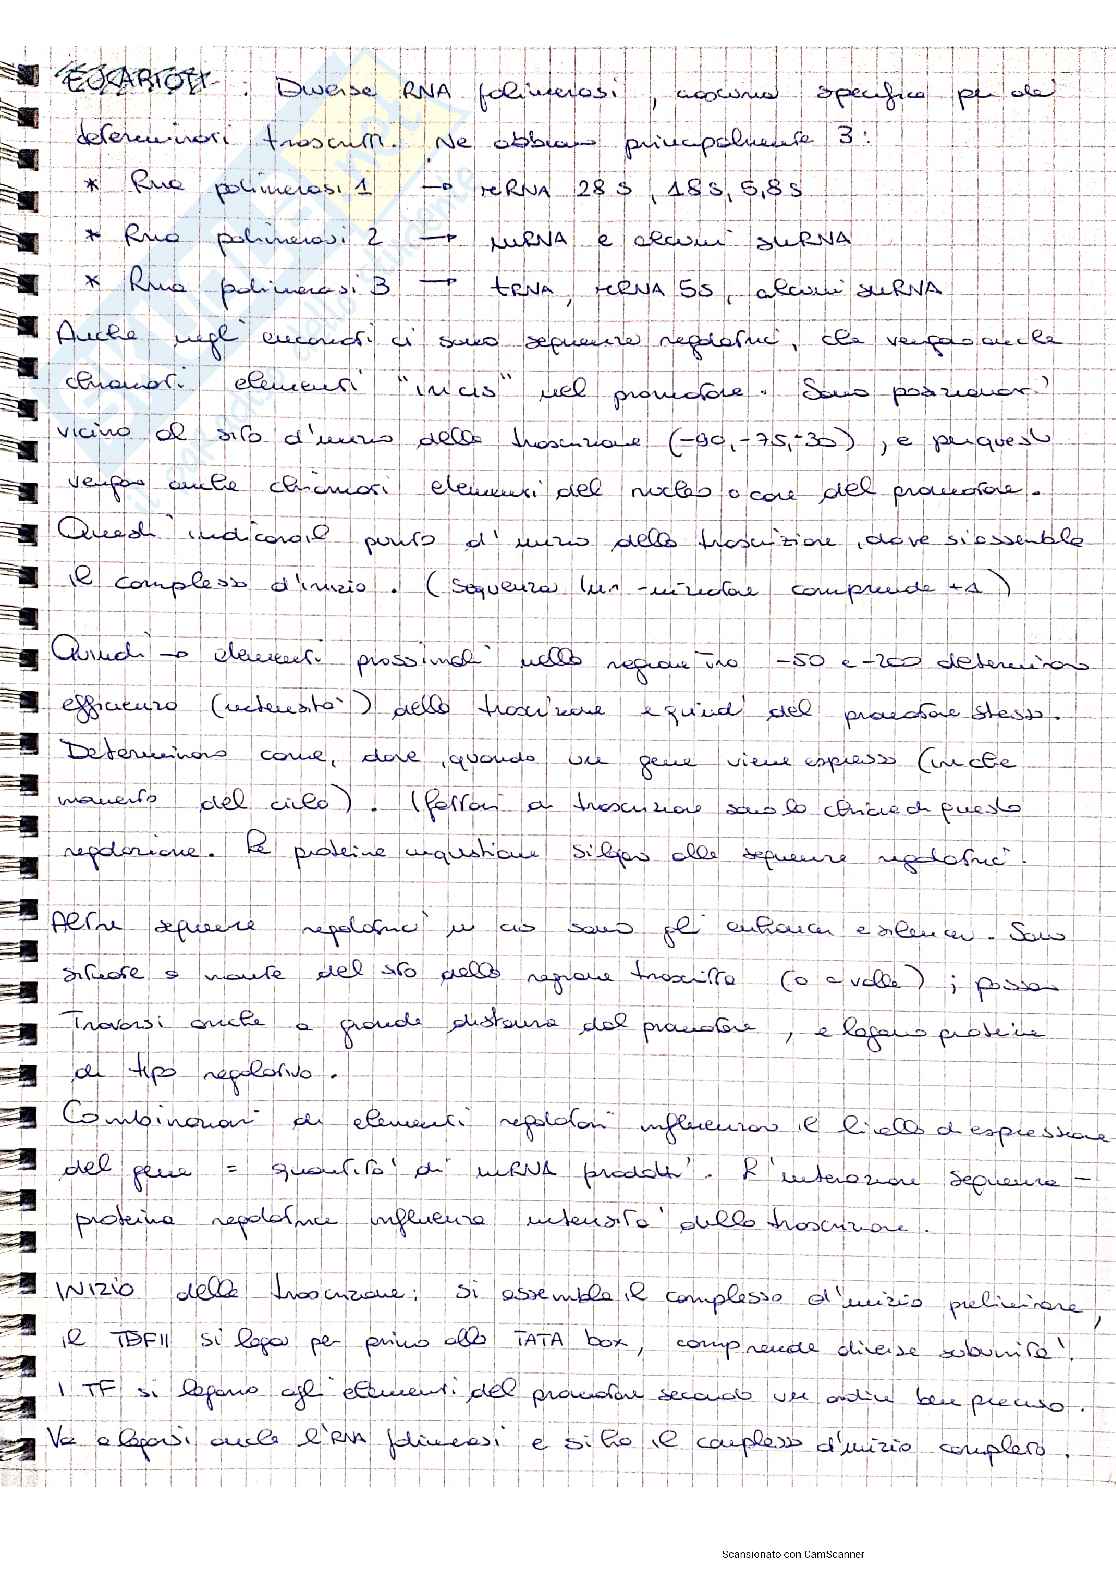 EUCARIOTI : Diverse RNA polimerasi, ciascuna specifica per dei
determinati trascritti. Ne abbiamo principalmente 3:
* Rna polimerasi 1 → rRNA 28S, 18S, 5,8S
* Rna polimerasi 2 → mRNA e alcuni snRNA
* Rna polimerasi 3 → tRNA, rRNA 5S, alcuni snRNA
Anche negli eucarioti ci sono sequenze regolatrici, che vengono anche
chiamati elementi "in cis" nel promotore. Sono posizionati
vicino al sito d'inizio della trascrizione (-90,-75,-30), e per questo
vengono anche chiamati elementi del nucleo o core del promotore.
Questi indicano il punto d'inizio della trascrizione, dove si assembla
il complesso d'inizio. (Sequenza Inr -iniziatore comprende +1)
Quindi → elementi prossimali nella regione tra -50 e -200 determinano
efficienza (intensità) della trascrizione e quindi del promotore stesso.
Determinano come, dove, quando un gene viene espresso (in che
momento del ciclo). (fattori di trascrizione sono la chiave di questa
regolazione. Le proteine in questione si legano alle sequenze regolatrici.
Altre sequenze regolatrici in cis sono gli enhancer e silencer. Sono
situate a monte del sito della regione trascritta (o a valle); possono
trovarsi anche a grande distanza dal promotore, e legano proteine
di tipo regolativo.
Combinazioni di elementi regolatori influenzano il livello di espressione
del gene = quantità di mRNA prodotti. L'interazione sequenza-
proteina regolatrice influenza intensità della trascrizione.
INIZIO della trascrizione: si assembla il complesso d'inizio preliminare,
il TDFII si lega per primo alla TATA box, comprende diverse subunità.
I TF si legano agli elementi del promotore secondo un ordine ben preciso.
Va a legarsi anche l'RNA polimerasi e si ha il complesso d'inizio completo.
Scansionato con CamScanner